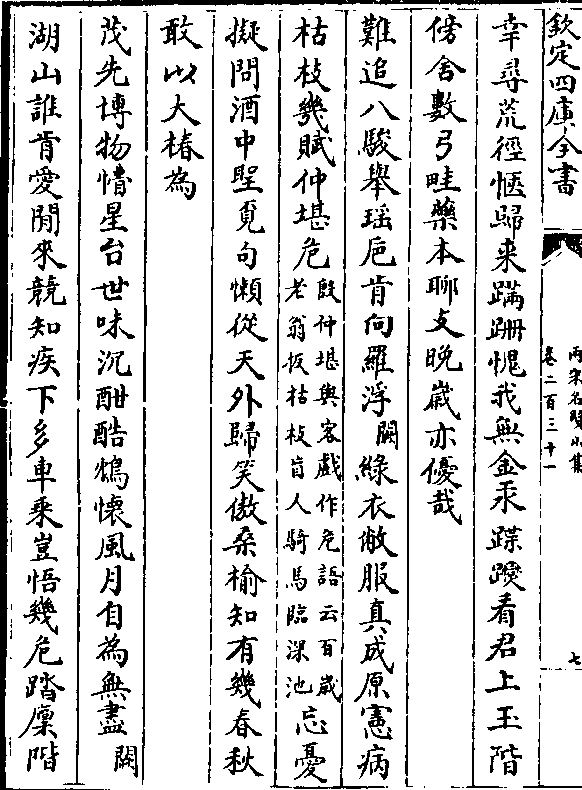 欽定四庫全書
兩宋名賢小集
卷二百三十一
七
幸尋荒徑愜歸来蹣跚愧我無金汞蹀躞看君上玉階
傍舍數弓畦藥本聊支晚嵗亦優哉
難追八駿舉瑶巵肯向羅浮闕綠衣敝服真成原憲病
枯枝幾賦仲堪危殷仲堪與客戲作危語云百嵗老翁扳枯枝盲人騎馬臨深池忘憂
擬問酒中聖覓句懶從天外歸笑傲桑榆知有幾春秋
敢以大椿為
茂先博物懵星台世味沉酣酷鴆懐風月自為無盡闕
湖山誰肯愛閒來競知疾下多車乗豈悟幾危踏廩階